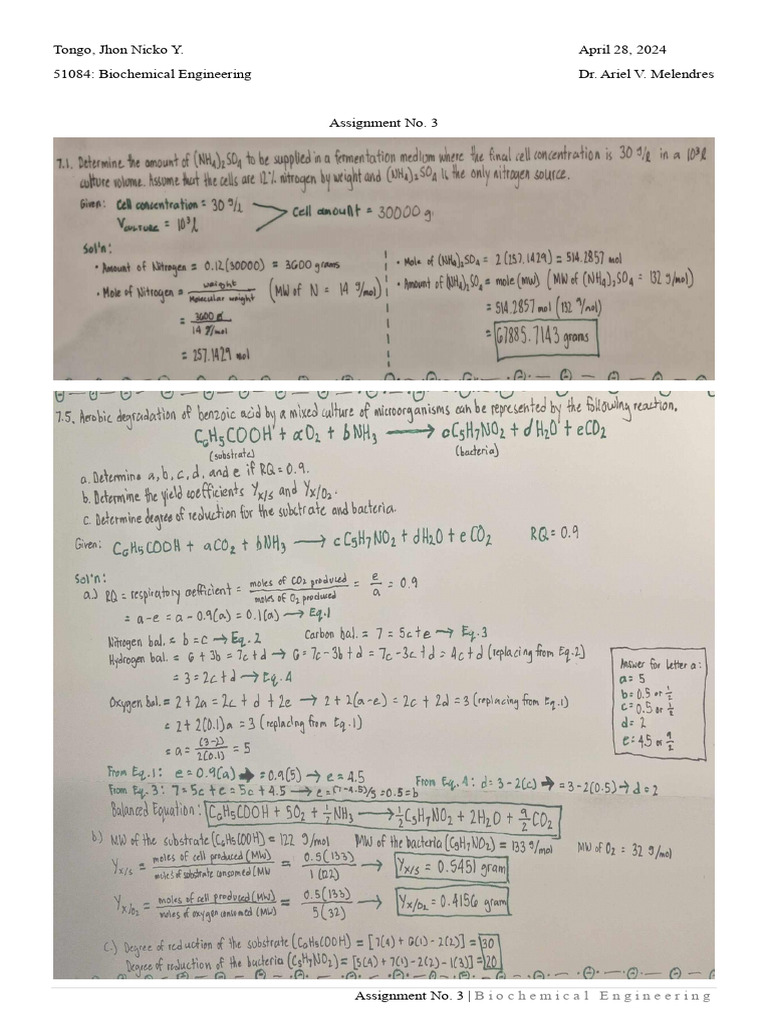 Tongo, Jhon Nicko Y. April 28, 2024
51084: Biochemical Engineering Dr. Ariel V. Melendres
Assignment No. 3
7.1. Determine the amount of (NH4)2SO4 to be supplied in a fermentation medium where the final cell concentration is 30 g/l in a 10³l
culture volume. Assume that the cells are 12% nitrogen by weight and (NH4)2SO4 is the only nitrogen source.
Given: Cell concentration = 30 g/l
Vculture = 10³l
Cell amount = 30000 g
Sol'n:
• Amount of Nitrogen = 0.12(30000) = 3600 grams
• Mole of Nitrogen = weight/Molecular weight (MW of N = 14 g/mol)
= 3600 g/14 g/mol
= 257.1429 mol
• Mole of (NH4)2SO4 = 2(257.1429) = 514.2857 mol
• Amount of (NH4)2SO4 = mole(mw) (MW of (NH4)2SO4 = 132 g/mol)
= 514.2857 mol (132 g/mol)
= 67885.7143 grams
7.5. Aerobic degradation of benzoic acid by a mixed culture of microorganisms can be represented by the following reaction.
C6H5COOH + aO2 + bNH3 → cC5H7NO2 + dH2O + eCO2
(substrate) (bacteria)
a. Determine a, b, c, d, and e if RQ = 0.9.
b. Determine the yield coefficients Yx/s and Yx/O2.
c. Determine degree of reduction for the substrate and bacteria.
Given: C6H5COOH + aCO2 + bNH3 → cC5H7NO2 + dH2O + eCO2 RQ = 0.9
Sol'n:
a.) RQ = respiratory coefficient = moles of CO2 produced/moles of O2 produced = e/a = 0.9
= a-e = a - 0.9(a) = 0.1(a) → Eq.1
Nitrogen bal. = b = c → Eq. 2 Carbon bal. = 7 = 5c + e → Eq. 3
Hydrogen bal. = 6 + 3b = 7c + d → 6 = 7c - 3b + d = 7c - 3c + d = 4c + d (replacing from Eq.2)
= 3 = 2c + d → Eq. 4
Oxygen bal. = 2 + 2a = 2c + d + 2e → 2 + 2(a-e) = 2c + 2d = 3 (replacing from Eq.1)
= 2 + 2(0.1)a = 3 (replacing from Eq.1)
= a = (3-2)/2(0.1) = 5
Answer for letter a:
a = 5
b = 0.5 or 1/2
c = 0.5 or 1/2
d = 2
e = 4.5 or 9/2
From Eq.1: e = 0.9(a) → = 0.9(5) → e = 4.5
From Eq. 3: 7 = 5c + e = 5c + 4.5 → c = (7-4.5)/5 = 0.5 = b From Eq. 4: d = 3 - 2(c) → = 3 - 2(0.5) → d = 2
Balanced Equation: C6H5COOH + 5O2 + 1/2 NH3 → 1/2 C5H7NO2 + 2H2O + 9/2 CO2
b) MW of the substrate (C6H5COOH) = 122 g/mol MW of the bacteria (C5H7NO2) = 133 g/mol MW of O2 = 32 g/mol
Yx/s = moles of cell produced (MW)/moles of substrate consomed (MW = 0.5(133)/1(122) → Yx/s = 0.5451 gram
Yx/O2 = moles of cell produced (MW)/moles of oxygen consomed (MW) = 0.5(133)/5(32) → Yx/O2 = 0.4156 gram
c.) Degree of reduction of the substrate (C6H5COOH) = [7(4) + 6(1) - 2(2)] = 30
Degree of reduction of the bacteria (C5H7NO2) = [5(4) + 7(1) - 2(2) - 1(3)] = 20
Assignment No. 3 | Biochemical Engineering